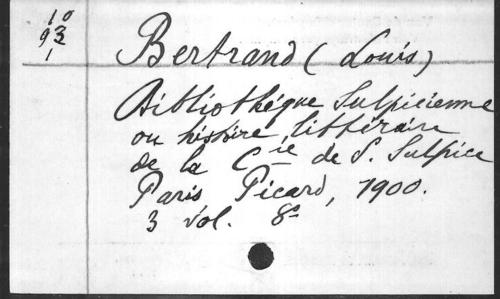 10
93
1
Bertrand (Louis)
Bibliothèque Sulpicienne
ou histoire littéraire
de la Cie de S. Sulpice
Paris Picard, 1900.
3 vol. 8º